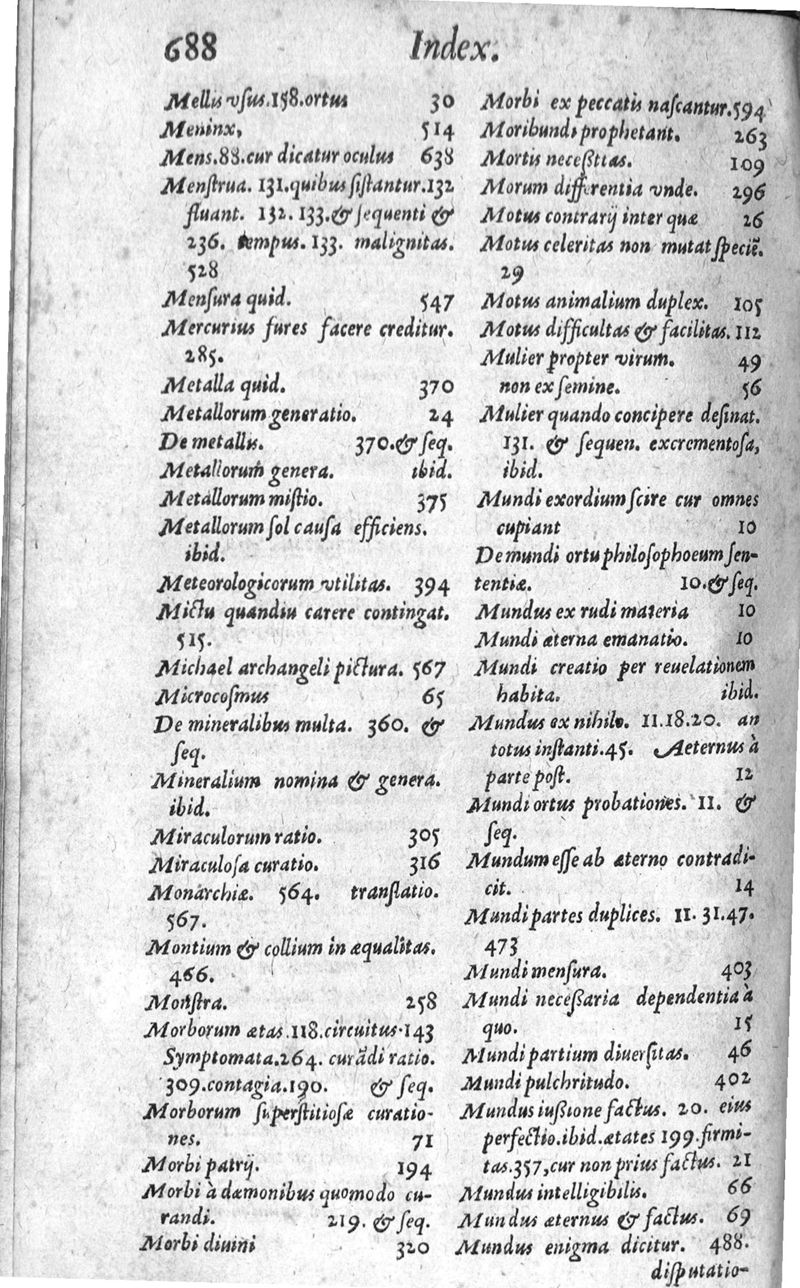 688 Index.
Mellis vſus.158.ortus 30
Meninx, 514
Mens.88.cur dicatur oculus 638
Menſtrua. 131.quibus ſiſtantur.132
fluant. 132. 133.& ſequenti &
236. tempus. 133. malignitas.
528
Menſura quid. 547
Mercurius fures facere creditur.
285.
Metalla quid. 370
Metallorum generatio. 24
De metallis. 370.& ſeq.
Metallorum genera. ibid.
Metallorum miſtio. 375
Metallorum ſol cauſa efficiens.
ibid.
Meteorologicorum vtilitas. 394
Mictu quandiu carere contingat.
515.
Michael archangeli pictura. 567
Microcoſmus 65
De mineralibus multa. 360. &
ſeq.
Mineralium nomina & genera.
ibid.
Miraculorum ratio. 305
Miraculoſa curatio. 316
Monarchiæ. 564. tranſlatio.
567.
Montium & collium in æqualitas.
466.
Monſtra. 258
Morborum ætas.118.circuitus.143
Symptomata.264. curãdi ratio.
309.contagia.190. & ſeq.
Morborum ſuperſtitioſæ curatio-
nes. 71
Morbi patrij. 194
Morbi à dæmonibus quomodo cu-
randi. 219. & ſeq.
Morbi diuini 320
Morbi ex peccatis naſcantur.594
Moribundi prophetant. 263
Mortis neceßitas. 109
Morum differentia vnde. 296
Motus contrarij inter quæ 26
Motus celeritas non mutat ſpeciẽ.
29
Motus animalium duplex. 105
Motus difficultas & facilitas. 112
Mulier propter virum. 49
non ex ſemine. 56
Mulier quando concipere deſinat.
131. & ſequen. excrementoſa,
ibid.
Mundi exordium ſcire cur omnes
cupiant 10
De mundi ortu philoſophoeum ſen-
tentiæ. 10.& ſeq.
Mundus ex rudi materia 10
Mundi æterna emanatio. 10
Mundi creatio per reuelationem
habita. ibid.
Mundus ex nihilo. 11.18.20. an
totus inſtanti.45. Aeternus à
parte poſt. 12
Mundi ortus probationes. 11. &
ſeq.
Mundum eſſe ab æterno contradi-
cit. 14
Mundi partes duplices. 11. 31.47.
473
Mundi menſura. 403
Mundi neceßaria dependentia à
quo. 15
Mundi partium diuerſitas. 46
Mundi pulchritudo. 402
Mundus iußione factus. 20. eius
perfectio.ibid.ætates 199.firmi-
tas.357,cur non prius factus. 21
Mundus intelligibilis. 66
Mundus æternus & factus. 69
Mundus enigma dicitur. 488.
diſputatio-